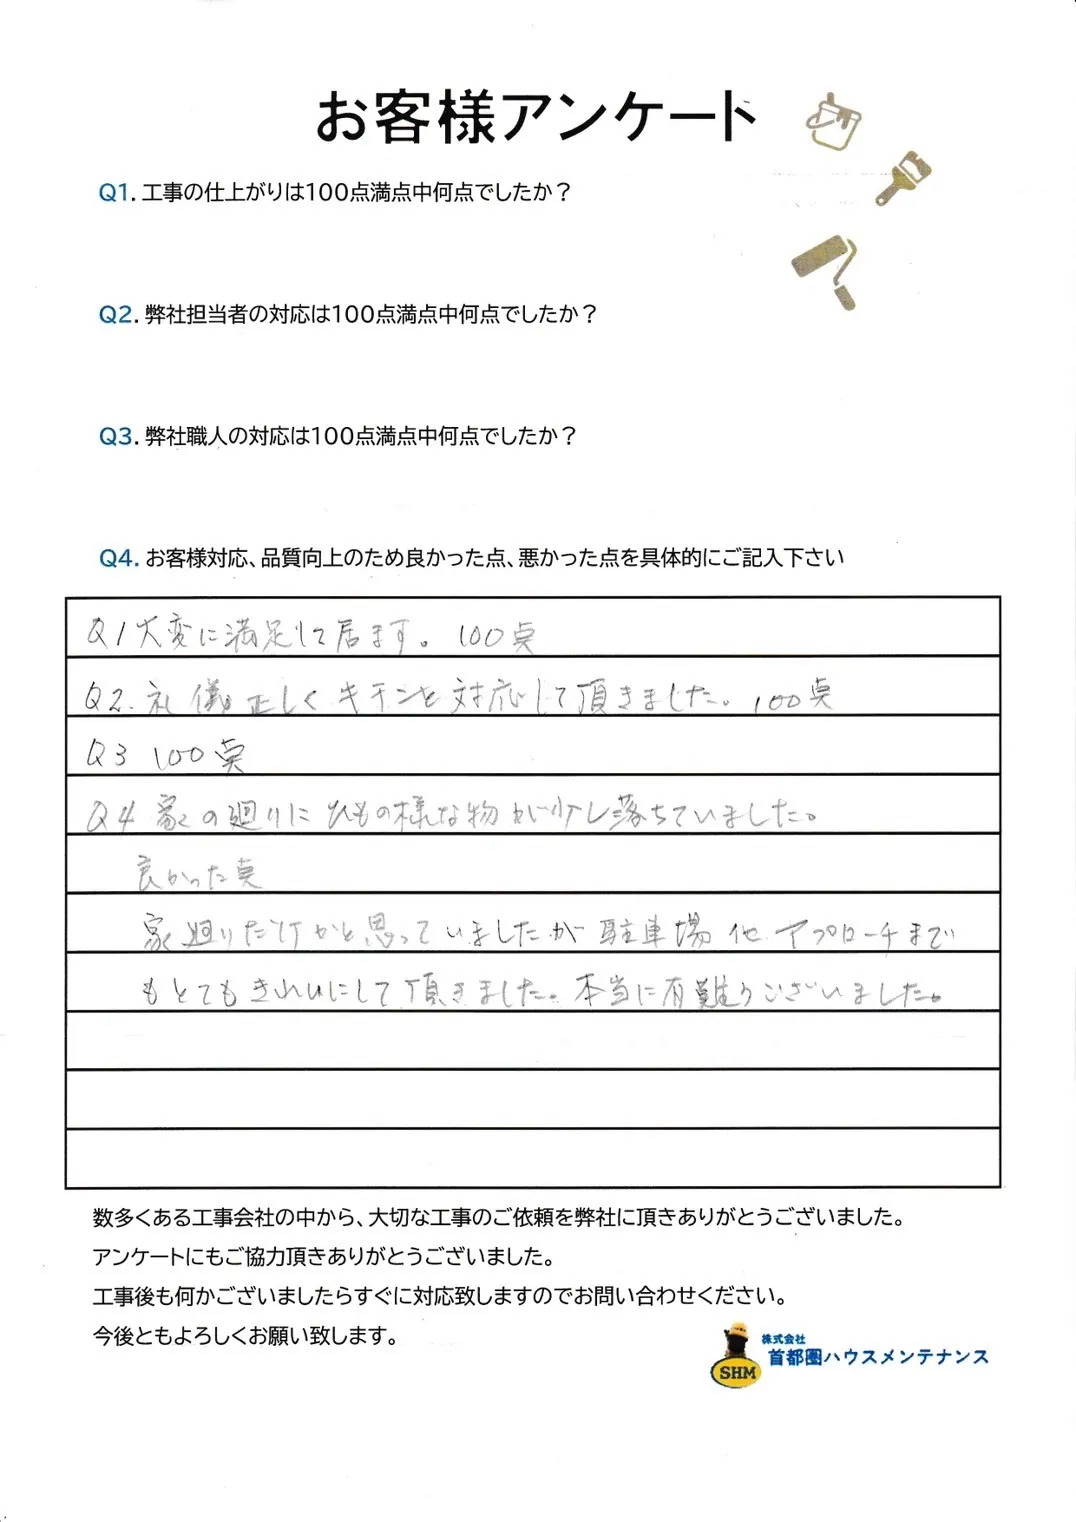 お客様アンケート
Q1. 工事の仕上がりは100点満点中何点でしたか？
Q2. 弊社担当者の対応は100点満点中何点でしたか？
Q3. 弊社職人の対応は100点満点中何点でしたか？
Q4. お客様対応、品質向上のため良かった点、悪かった点を具体的にご記入下さい
Q1 大変に満足して居ます。 100点
Q2. 礼儀正しくキチンと対応して頂きました。 100点
Q3 100点
Q4 家の廻りにひもの様な物が少し落ちていました。
良かった点
家廻りだけかと思っていましたが 駐車場 他 アプローチまで
もとてもきれいにして頂きました。本当に有難うございました。
数多くある工事会社の中から、大切な工事のご依頼を弊社に頂きありがとうございました。
アンケートにもご協力頂きありがとうございました。
工事後も何かございましたらすぐに対応致しますのでお問い合わせください。
今後ともよろしくお願い致します。
株式会社
首都圏ハウスメンテナンス
SHM